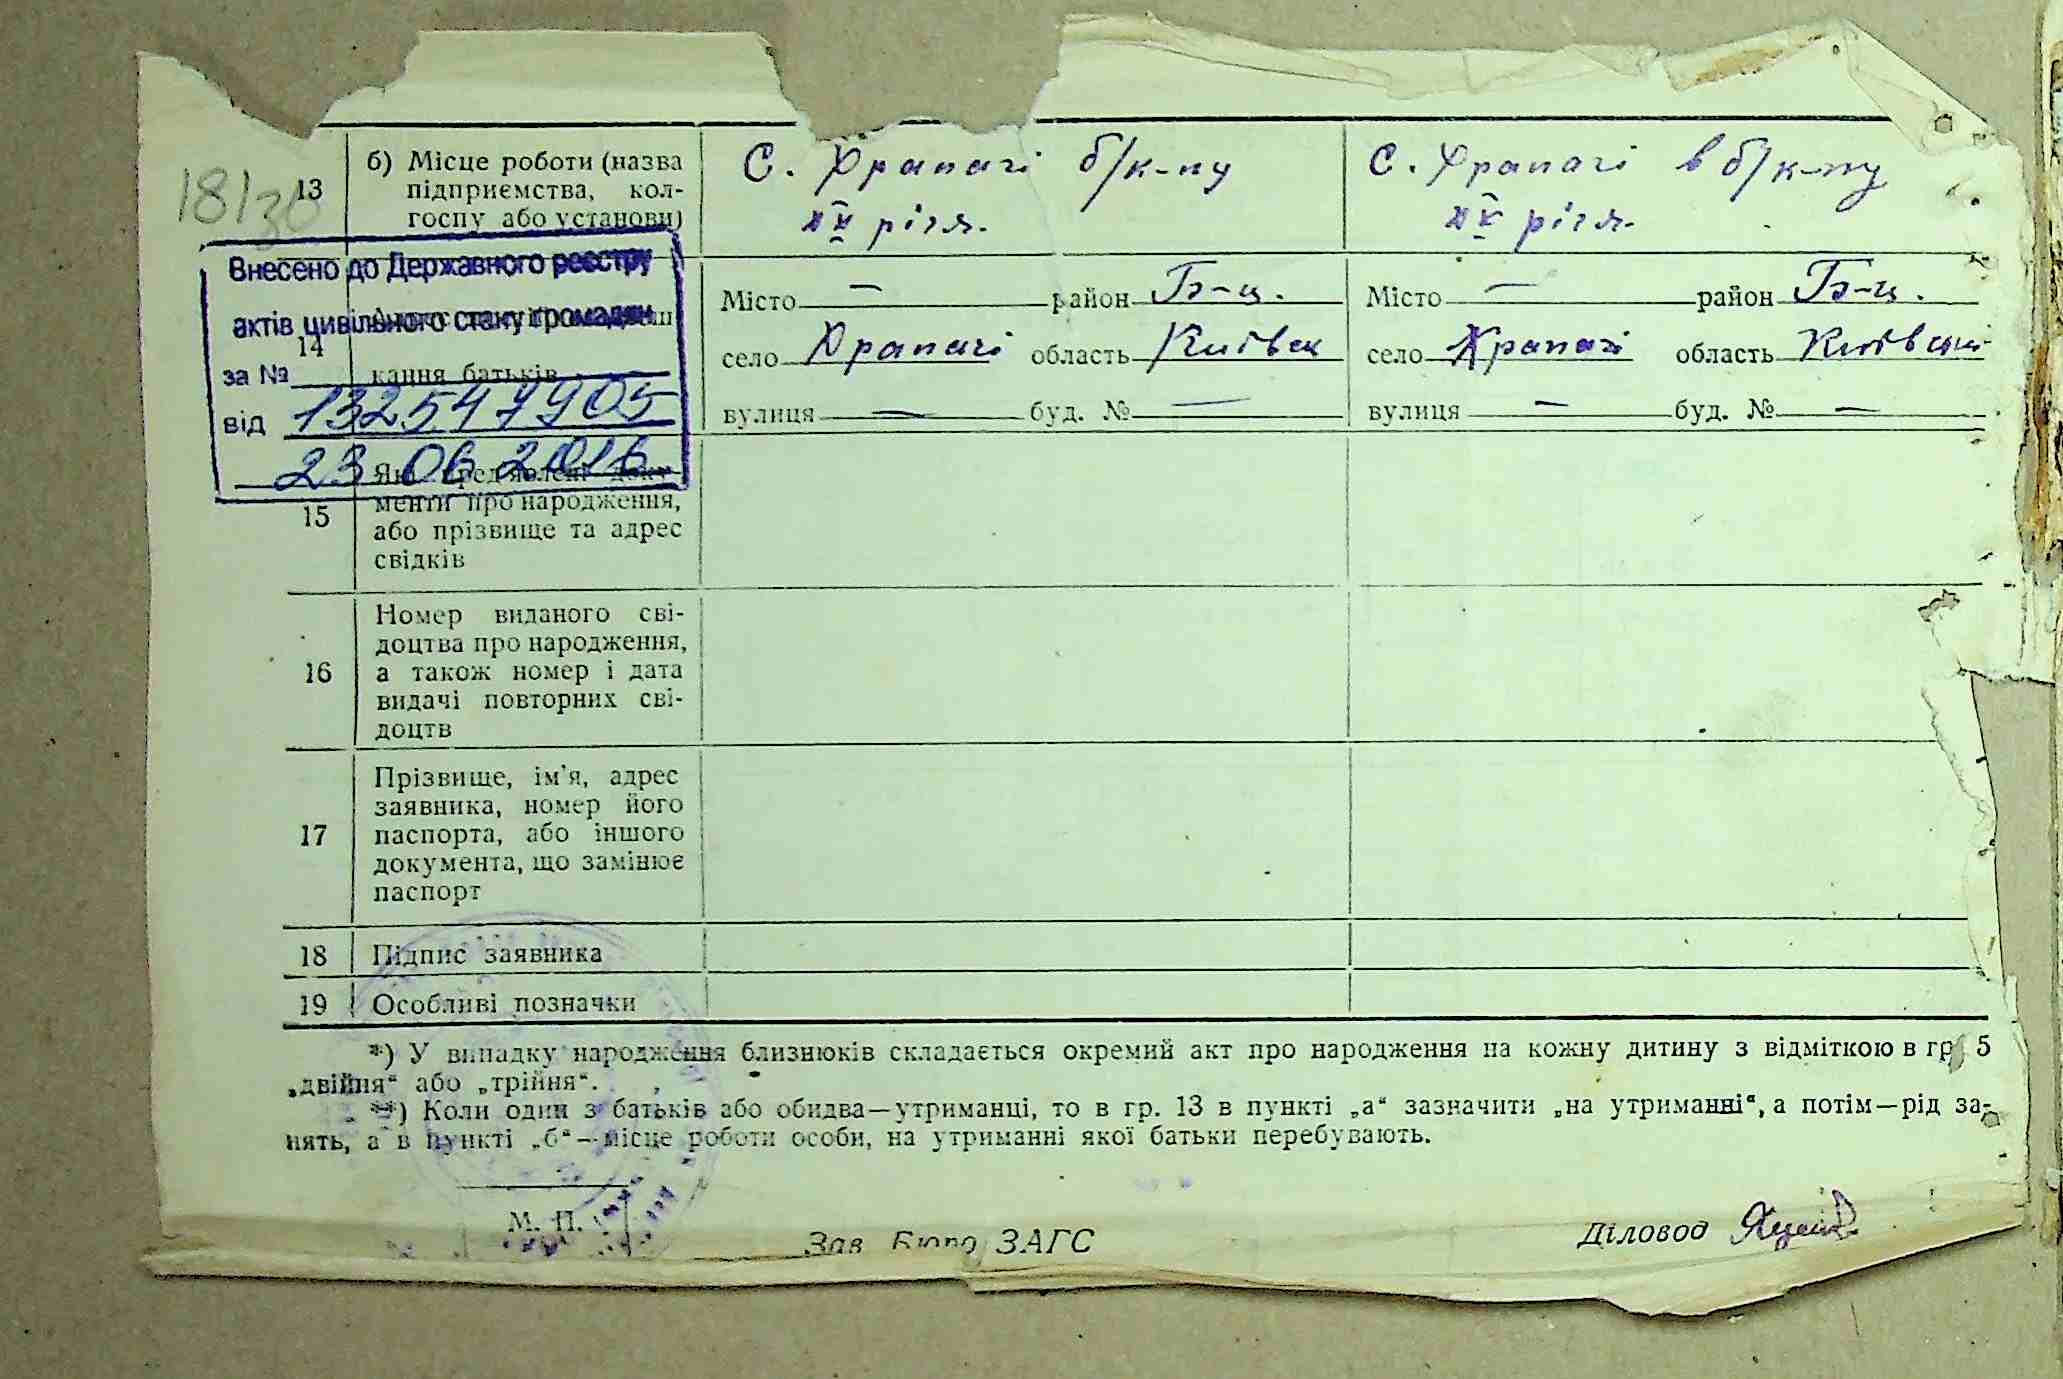 18/30
13
б) Місце роботи (назва
підприємства, кол-
госпу або установи)
С. Храпачі б/к-пу
ХV річя.
С. Храпачі в б/к-пу
ХV річя.
Внесено до Державного реєстру
актів цивільного стану громадян
за №
від 132547905
23 06 2016
14
кання батьків
Місто — район Б-ц.
село Храпачі область Київськ
вулиця — буд. № —
Місто — район Б-ц.
село Храпачі область Київськ
вулиця — буд. № —
15
Які пред'явлені доку-
менти про народження,
або прізвище та адрес
свідків
16
Номер виданого сві-
доцтва про народження,
а також номер і дата
видачі повторних сві-
доцтв
17
Прізвище, ім'я, адрес
заявника, номер його
паспорта, або іншого
документа, що замінює
паспорт
18 Підпис заявника
19 Особливі позначки
*) У випадку народження близнюків складається окремий акт про народження на кожну дитину з відміткою в гр. 5
„двійня“ або „трійня“.
**) Коли один з батьків або обидва—утриманці, то в гр. 13 в пункті „а“ зазначити „на утриманні“, а потім—рід за-
нять, а в пункті „б“—місце роботи особи, на утриманні якої батьки перебувають.
М. П.
Зав. Бюро ЗАГС
Діловод